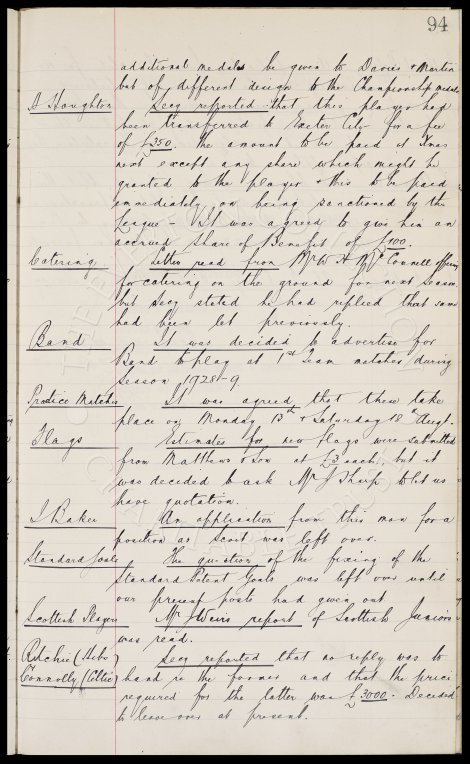 94
additional medals be given to Davies & Martin
but of different design to the Championship medals
A Houghton Secy reported that this player had
been transferred to Exeter City for a fee
of £350. The amount to be paid at Xmas
next except any share which might be
granted to the player & this to be paid
immediately on being sanctioned by the
League. It was agreed to give him an
accrued share of Benefit of £100.
Catering Letter read from Mr W H McConnell offering
for catering on the ground for next season
but Secy stated he had replied that same
had been let previously.
Band It was decided to advertise for
Band to play at 1st Team matches during
season 1928-9
Practice Matches It was agreed that these take
place on Monday 13th & Saturday 18th Augt.
Flags Estimates for new flags were submitted
from Matthews & Son at £3 each, but it
was decided to ask Mr J Sharp to let us
have quotation.
J Baker An application from this man for a
position as Scout was left over.
Standard Goals The question of the fixing of the
Standard Patent Goals was left over until
our present posts had given out
Scottish Players Mr Weirs report of Scottish Juniors
was read.
Ritchie (Hibs) Secy reported that no reply was to
Connolly (Celtic) hand re the former and that the price
required for the latter was £3000. Decided
to leave over at present.